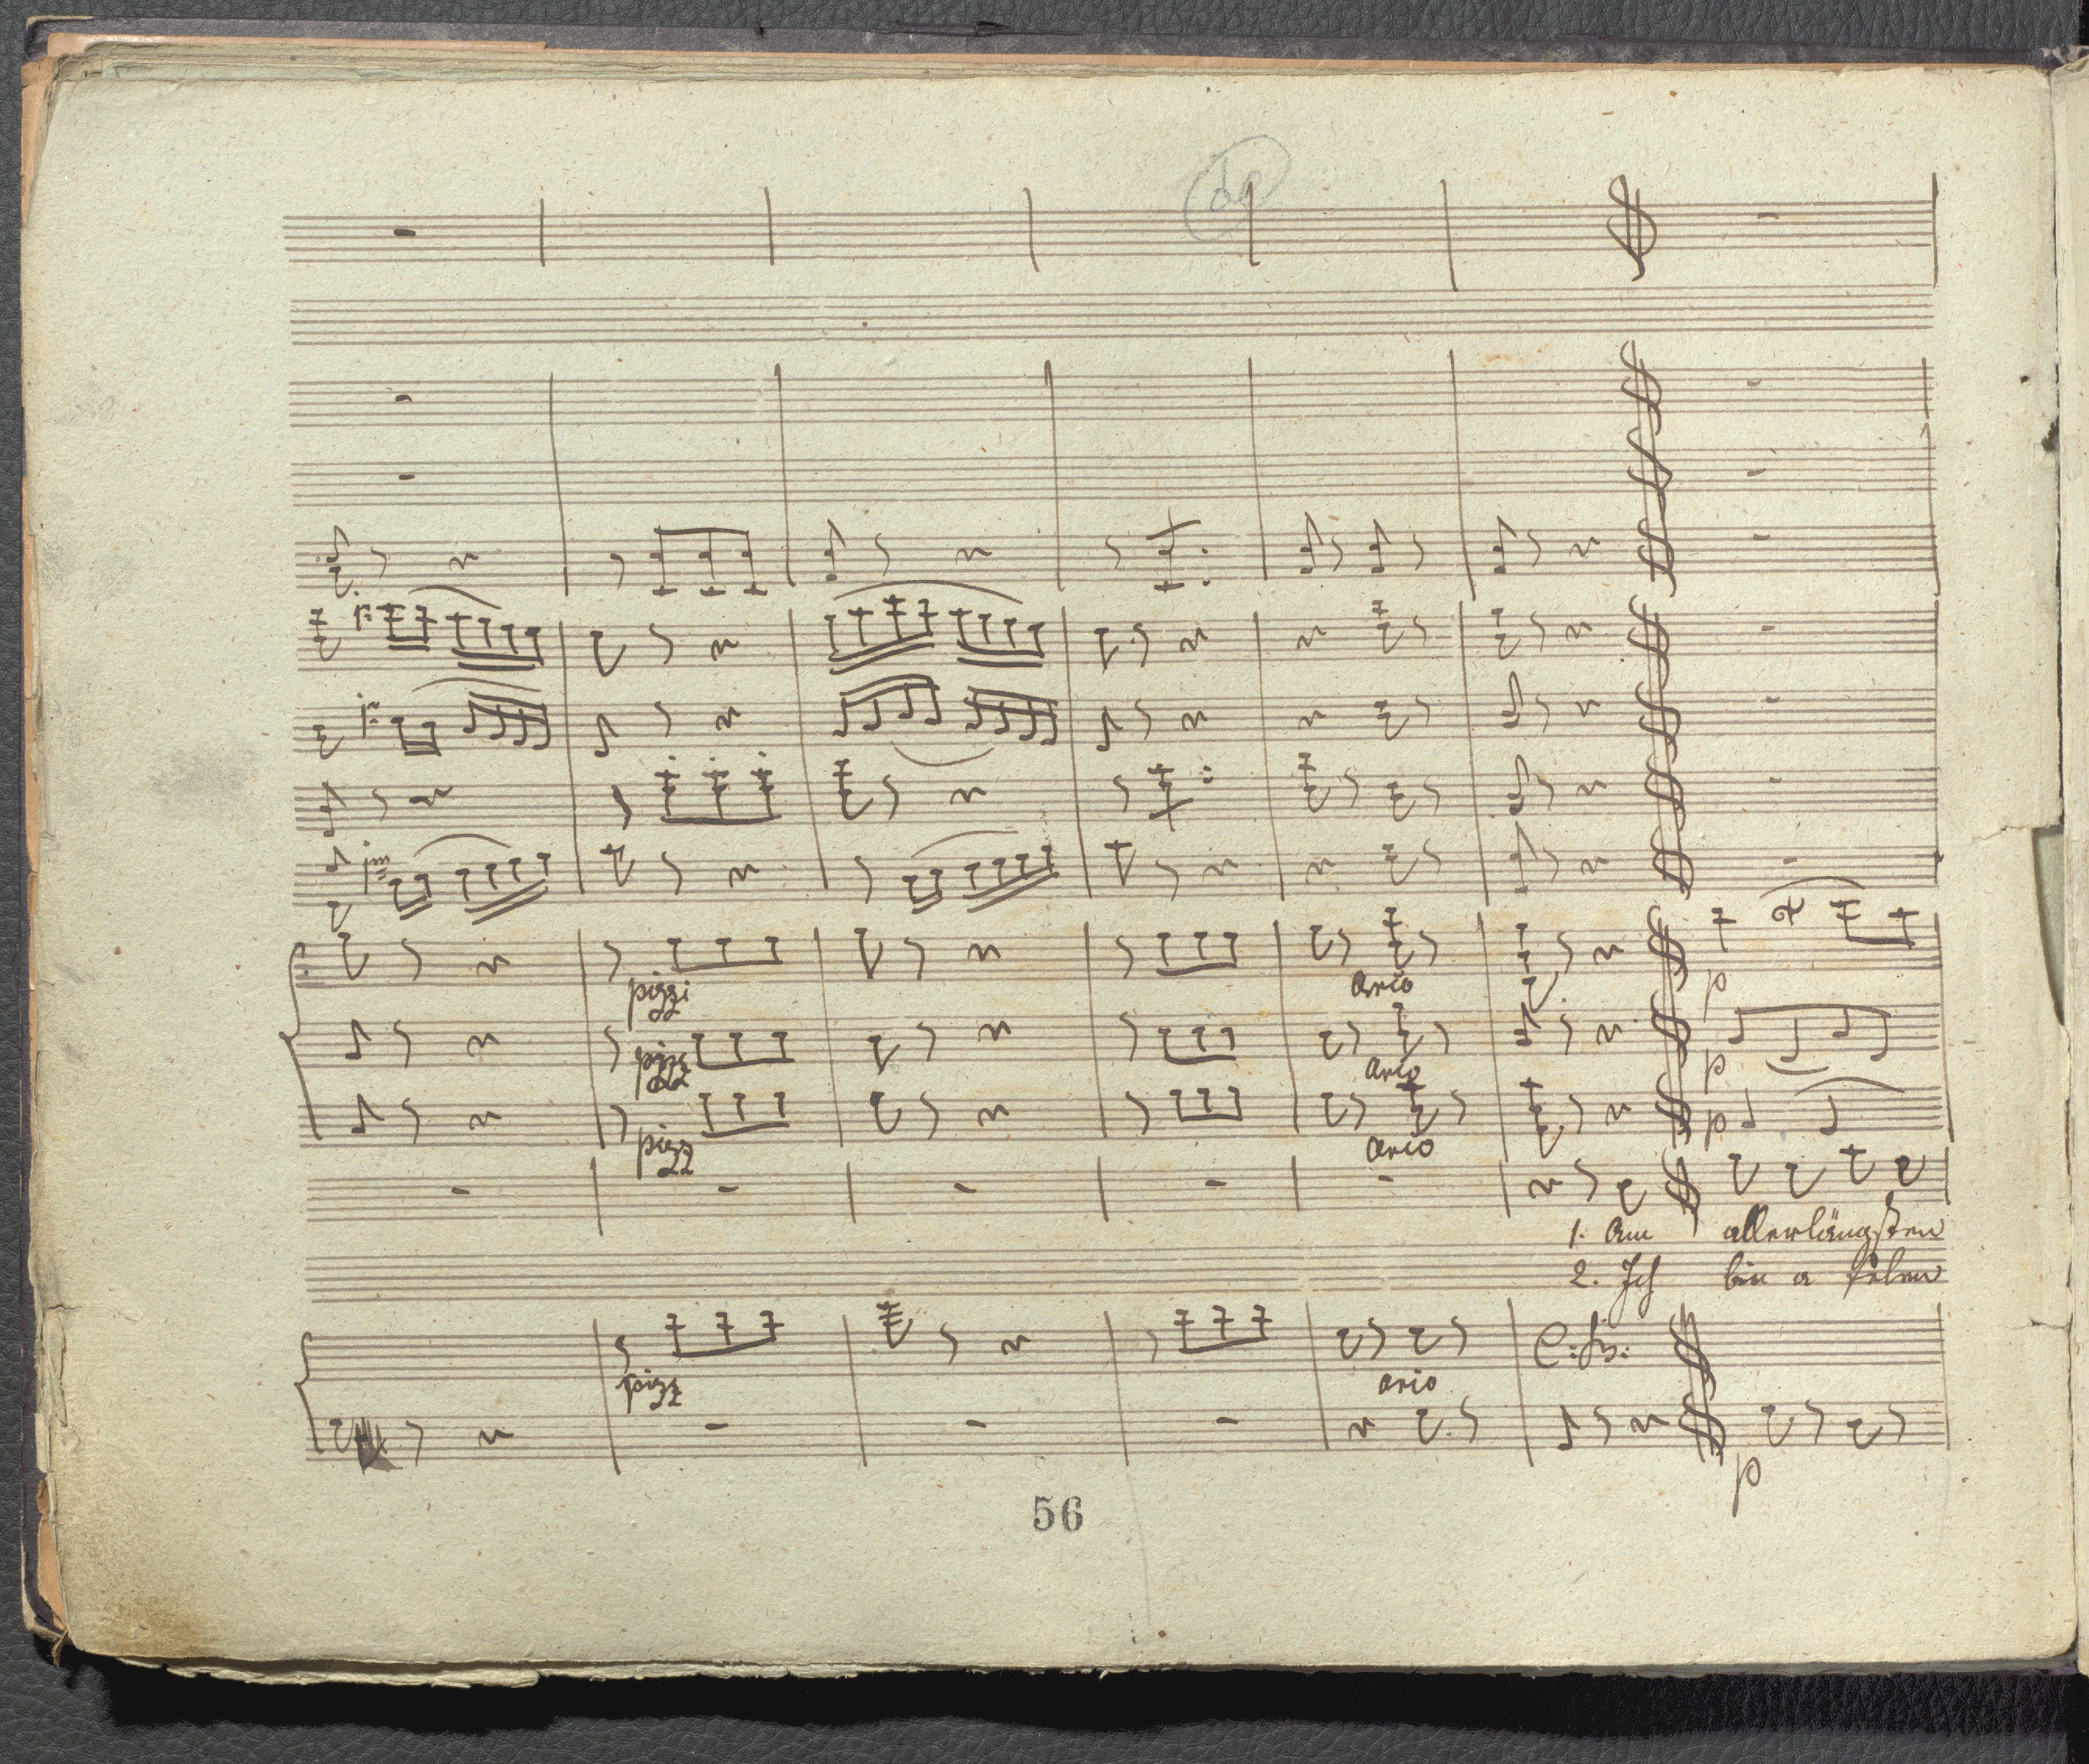 pizzi
arco
p
pizz
arco
p
pizz
arco
p
1. Am allerlängsten
2. Ich bin a
pizz
arco
p
56